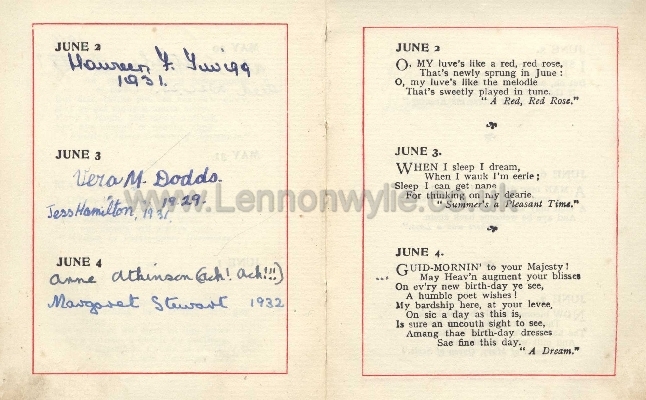 JUNE 2
Maureen F. Twigg
1931.
JUNE 3
Vera M. Dodds.
1929.
Jess Hamilton, 1931.
JUNE 4
Anne Atkinson (Ach! Ach!!!)
Margaret Stewart 1932
JUNE 2
O, MY luve's like a red, red rose,
That's newly sprung in June:
O, my luve's like the melodie
That's sweetly played in tune.
"A Red, Red Rose."
JUNE 3.
WHEN I sleep I dream,
When I wauk I'm eerie;
Sleep I can get nane
For thinking on my dearie.
"Summer's a Pleasant Time."
JUNE 4.
GUID-MORNIN' to your Majesty!
May Heav'n augment your blisses
On ev'ry new birth-day ye see,
A humble poet wishes!
My bardship here, at your levee,
On sic a day as this is,
Is sure an uncouth sight to see,
Amang thae birth-day dresses
Sae fine this day.
"A Dream."
www.Lennonwylie.co.uk